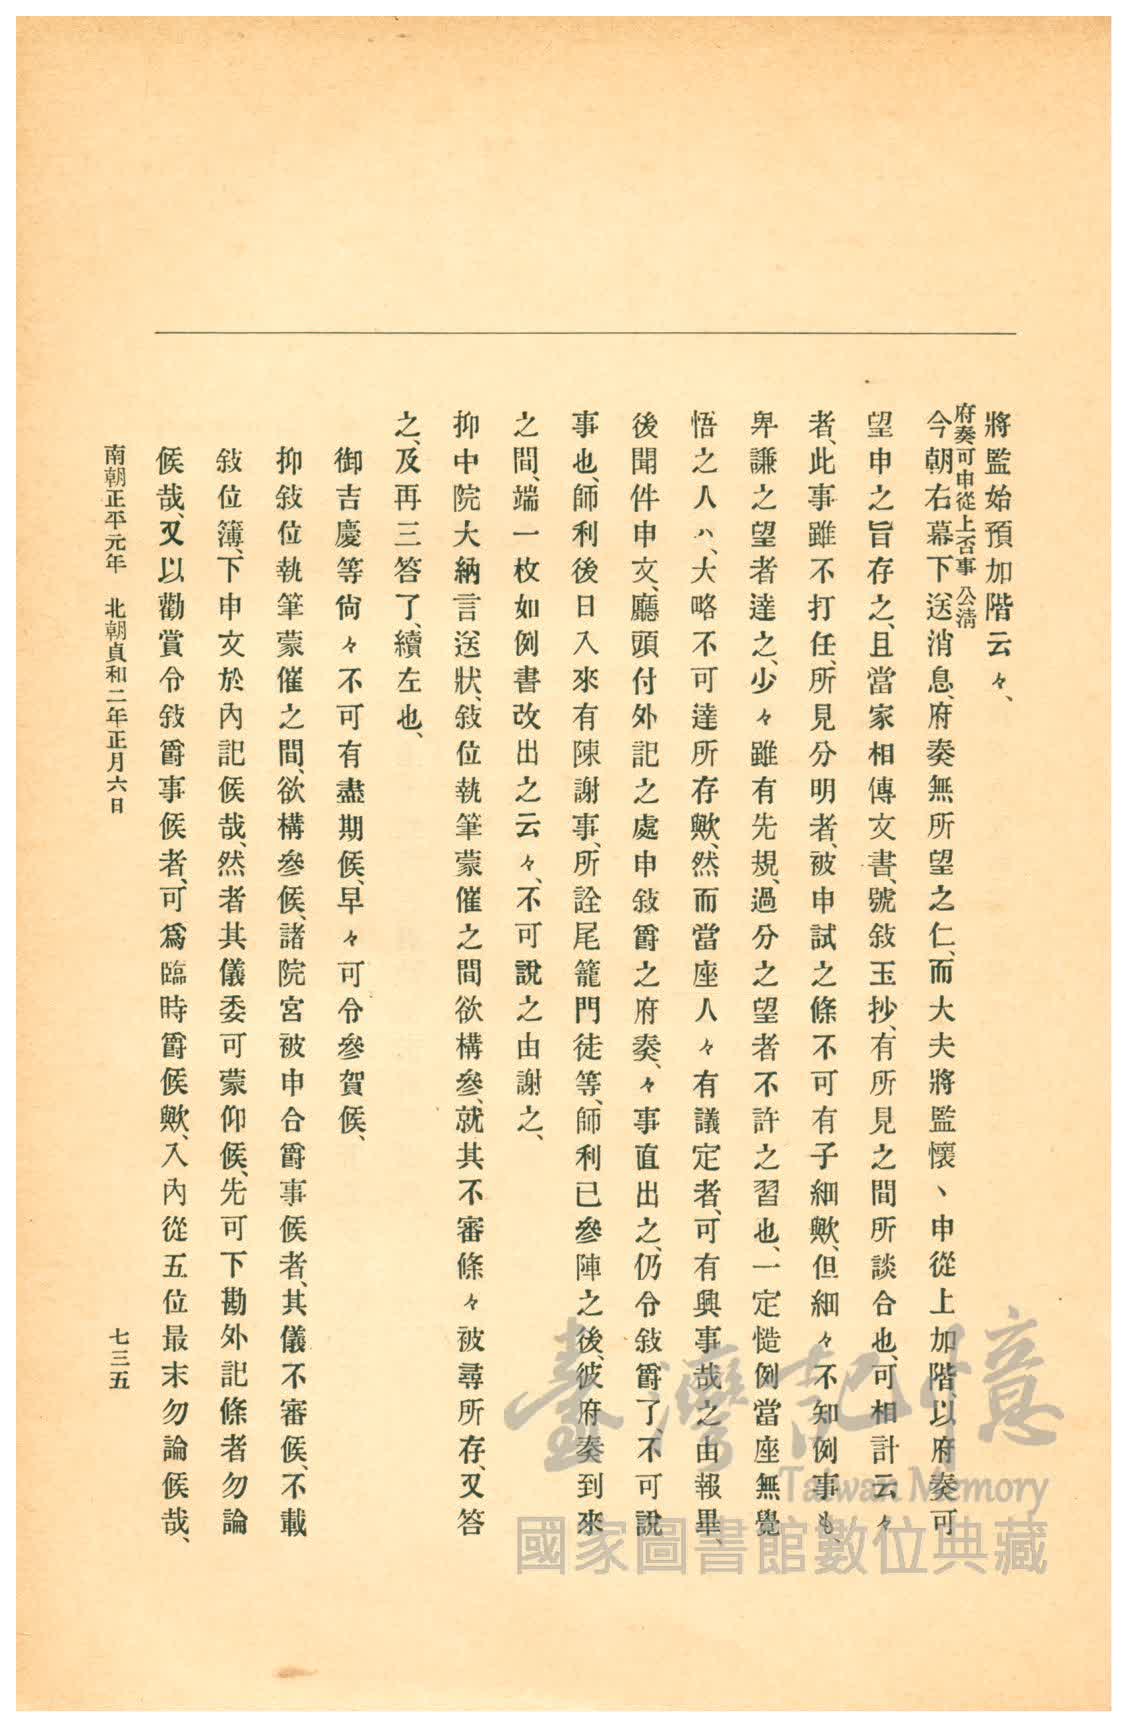 將監始預加階云々、
府奏可申從上否事 公淸
今朝右幕下送消息、府奏無所望之仁、而大夫將監懷丶申從上加階、以府奏可
望申之旨存之、且當家相傳文書、號敍玉抄、有所見之間所談合也、可相計云々
者、此事雖不打任、所見分明者、被申試之條不可有子細歟、但細々不知例事も、
卑謙之望者達之、少々雖有先規、過分之望者不許之習也、一定慥例當座無覺
悟之人ハ、大略不可達所存歟、然而當座人々有議定者、可有興事哉之由報畢、
後聞件申文、廳頭付外記之處申敍爵之府奏、々事直出之、仍令敍爵了、不可說
事也、師利後日入來有陳謝事、所詮尾籠門徒等、師利已參陣之後、彼府奏到來
之間、端一枚如例書改出之云々、不可說之由謝之、
抑中院大納言送狀、敍位執筆蒙催之間欲構參、就其不審條々被尋所存、又答
之、及再三答了、續左也、
御吉慶等尙々不可有盡期候、早々可令參賀候、
抑敍位執筆蒙催之間、欲構參候、諸院宮被申合爵事候者、其儀不審候、不載
敍位簿、下申文於內記候哉、然者其儀委可蒙仰候、先可下勘外記條者勿論
候哉、又以勸賞令敍爵事候者、可爲臨時爵候歟、入內從五位最末勿論候哉、
南朝正平元年 北朝貞和二年正月六日
七三五
臺灣記憶
Taiwan Memory
國家圖書館數位典藏